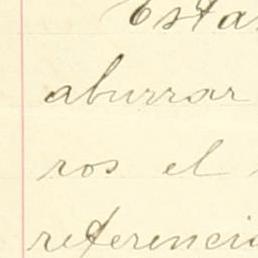 Esta
aburrar
ros el
referencia